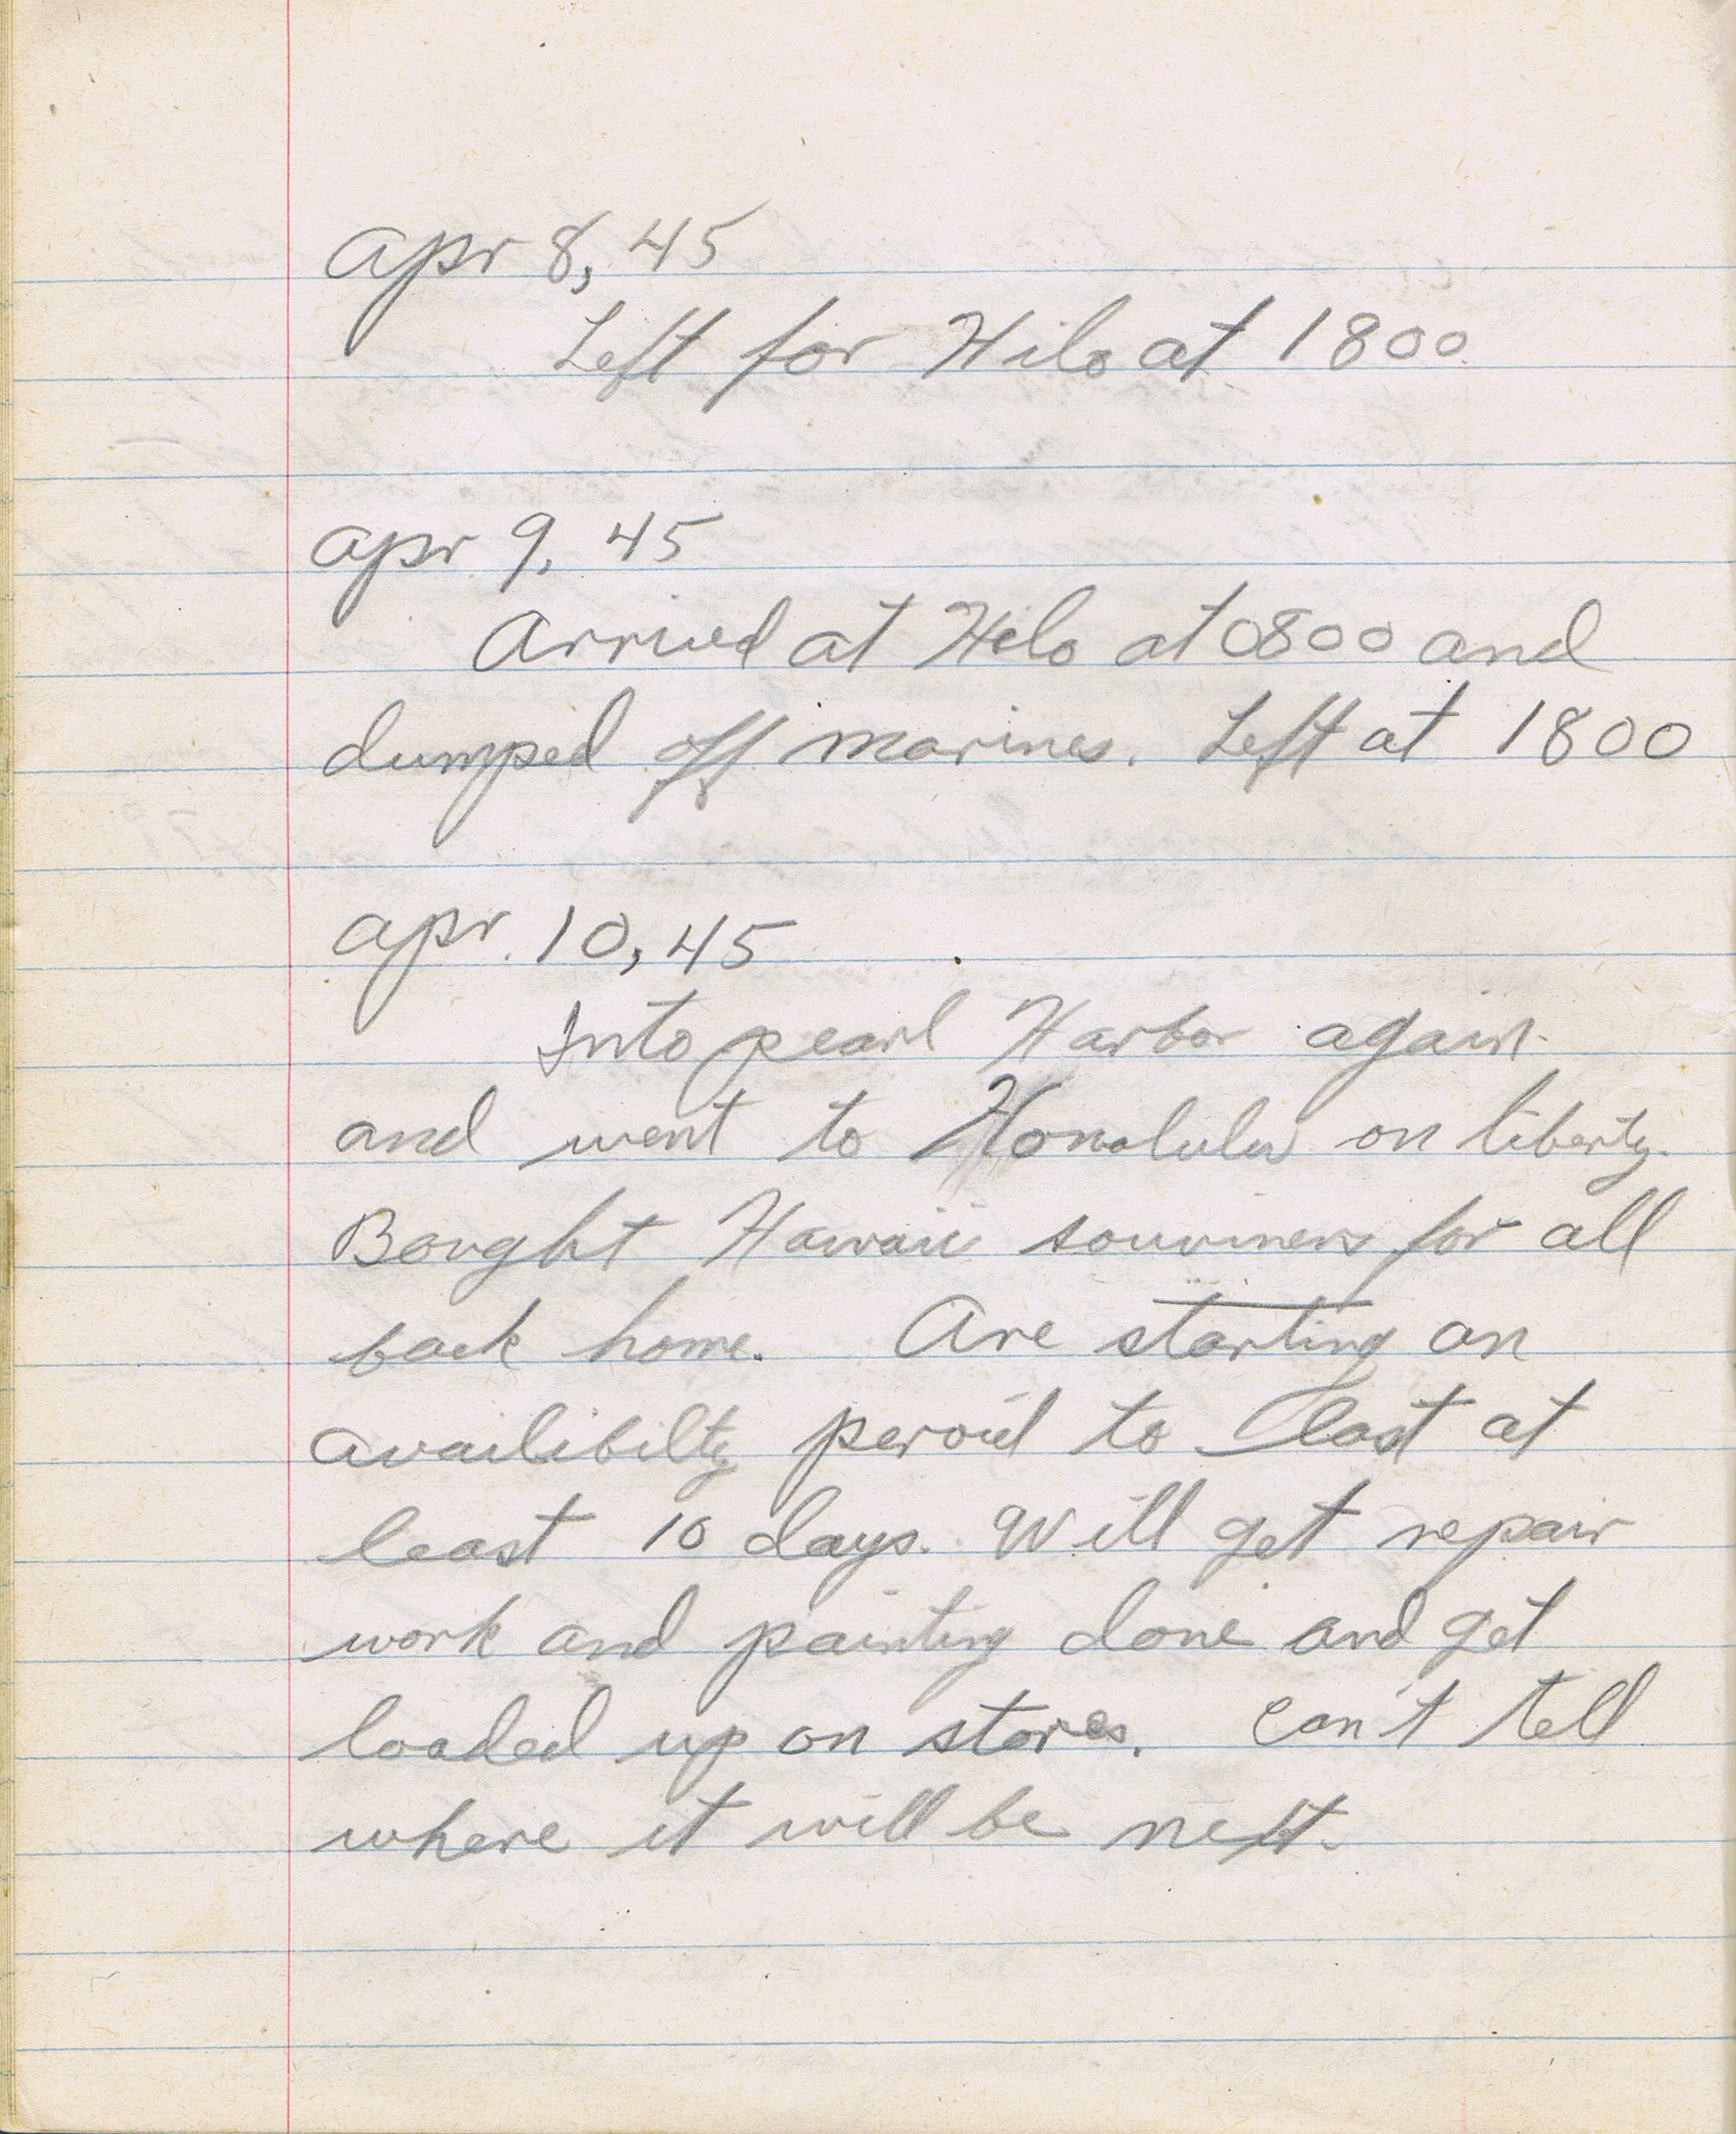 Apr 8, 45
Left for Hilo at 1800
Apr 9, 45
Arrived at Hilo at 0800 and
dumped off marines. Left at 1800
Apr. 10, 45
Into pearl Harbor again
and went to Honolulu on liberty.
Bought Hawaii souviners for all
back home. Are starting an
availibilty peroid to last at
least 10 days. Will get repair
work and painting done and get
loaded up on stores. Can't tell
where it will be next.